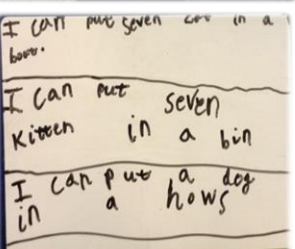 I can put seven cat in a
boat.
I can put seven
kitten in a bin
I can put a dog
in a hows